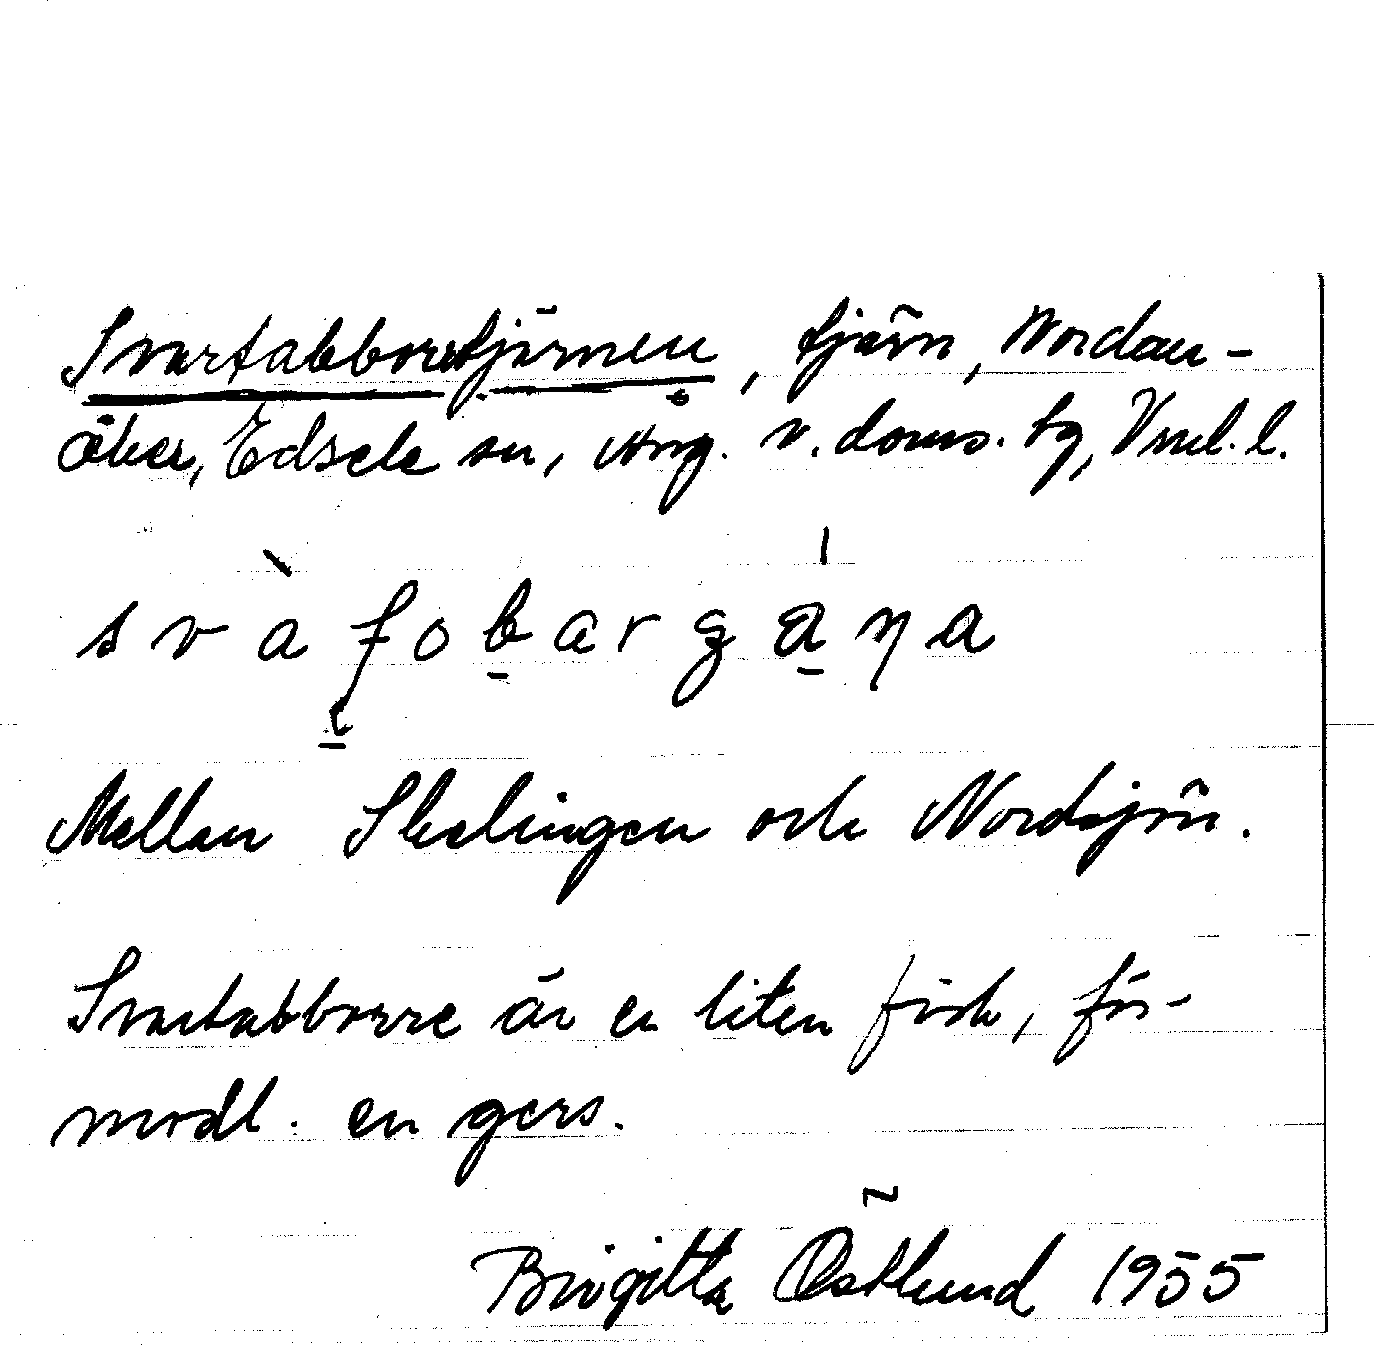 Svartabborrtjärnen, tjärn, Nordan-
åker, Edsele sn, Ång. v. doms. tg, Vnl. l.
Mellan Skelingen och Nordsjön.
Svartabborre är en liten fisk, för-
modl. en gers.
Birgitta Östlund 1955